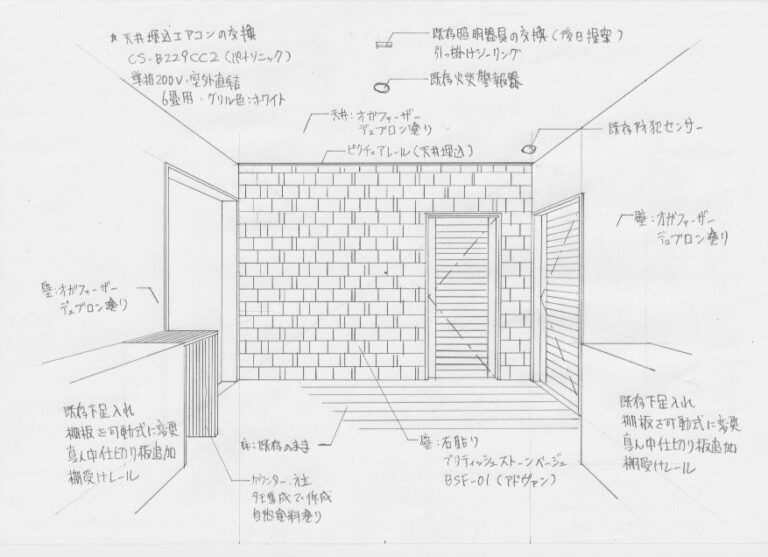 ☆天井埋込エアコンの交換
CS-B229CC2(パナソニック)
単相200V・室外直結
6畳用・グリル色:ホワイト
既存照明器具の交換(後日提案)
引っ掛けシーリング
既存火災警報器
天井:オガファーザー
デュブロン塗り
既存防犯センサー
ピクチュアレール(天井埋込)
壁:オガファーザー
デュブロン塗り
壁:オガファーザー
デュブロン塗り
既存下足入れ
棚板を可動式に変更
真ん中仕切り板追加
棚受けレール
床:既存のまま
壁:石貼り
ブリティッシュストーンベージュ
BSF-01(アドヴァン)
カウンター
集成で作成
自然塗料塗り
既存下足入れ
棚板を可動式に変更
真ん中仕切り板追加
棚受けレール